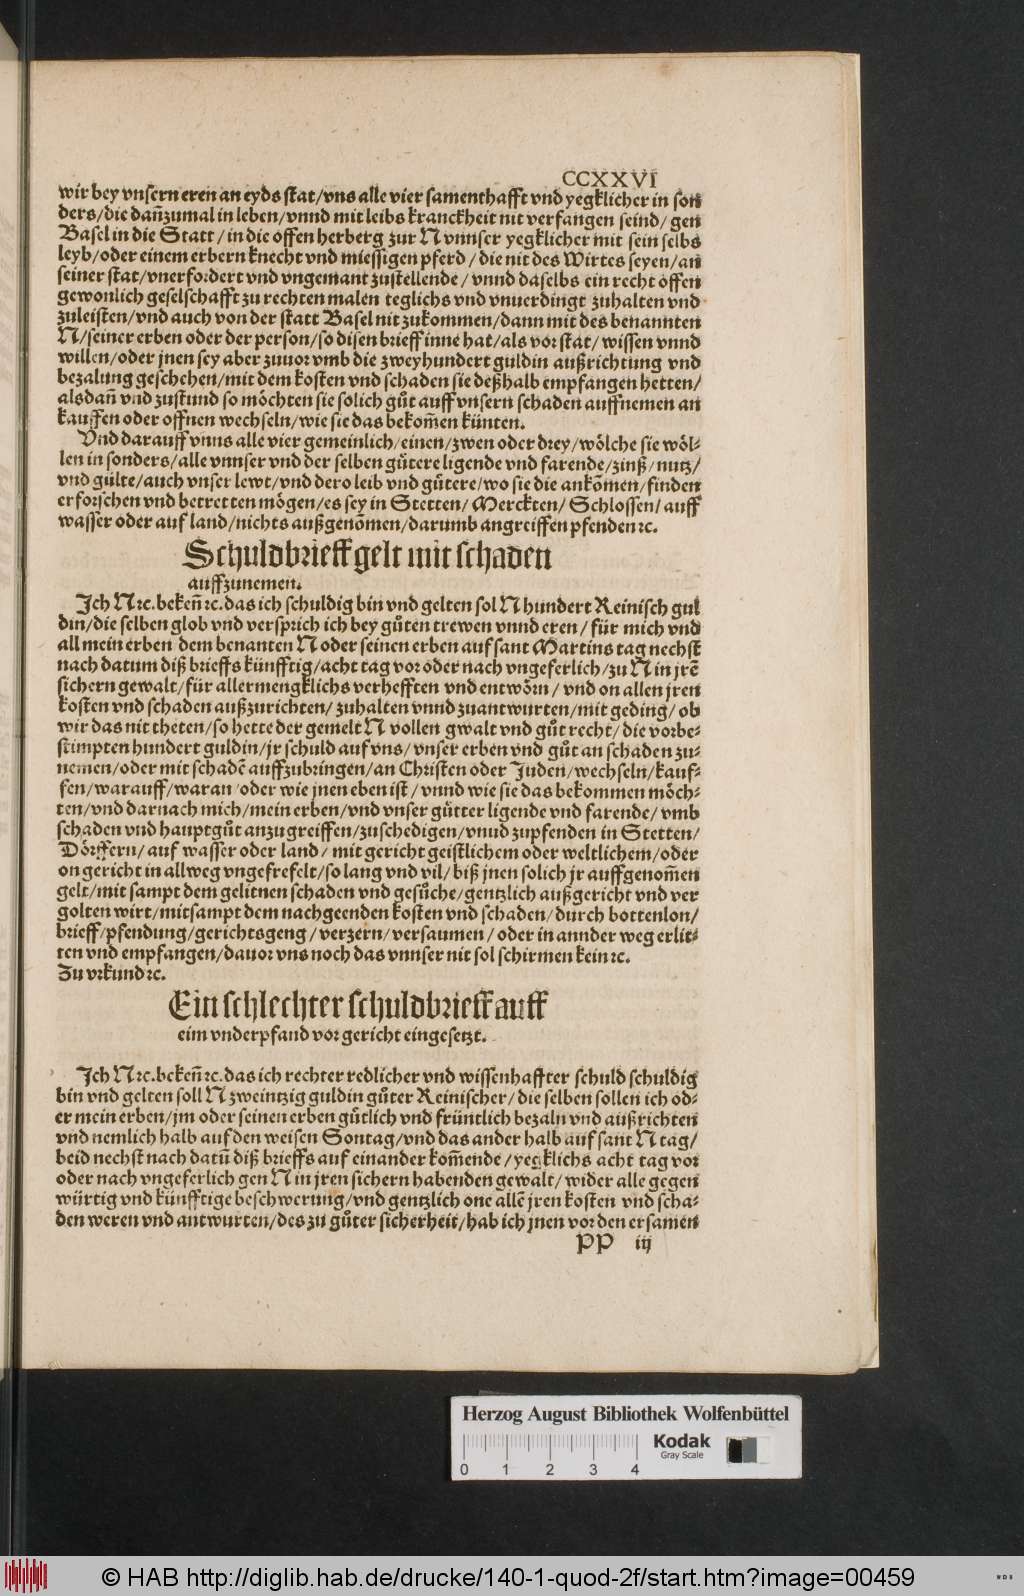 CCXXVI
wir bey vnsern eren an eyds stat/vns alle vier samenthafft vnd yegklicher in son
ders/die dañzumal in leben/vnnd mit leibs kranckheit nit verfangen seind/gen
Basel in die Statt/in die offen herberg zur N vnnser yegklicher mit sein selbs
leyb/oder einem erbern knecht vnd miessigen pferd/die nit des Wirtes seyen/an
seiner stat/vnerfordert vnd vngemant zustellende/vnnd daselbs ein recht offen
gewonlich geselschafft zu rechten malen teglichs vnd vnuerdingt zuhalten vnd
zuleisten/vnd auch von der statt Basel nit zukommen/dann mit des benannten
N/seiner erben oder der person/so disen brieff inne hat/als vor stat/wissen vnnd
willen/oder jnen sey aber zuuor vmb die zweyhundert guldin außrichtung vnd
bezalung geschehen/mit dem kosten vnd schaden sie deßhalb empfangen hetten/
alsdañ vnd zustund so möchten sie solich gůt auff vnsern schaden auffnemen an
kauffen oder offnen wechseln/wie sie das bekom̃en künten.
Vnd darauff vnns alle vier gemeinlich/einen/zwen oder drey/wölche sie wöl-
len in sonders/alle vnnser vnd der selben gůtere ligende vnd farende/zinß/nutz/
vnd gülte/auch vnser lewt/vnd dero leib vnd gůtere/wo sie die ankõmen/finden
erforschen vnd betretten mögen/es sey in Stetten/Merckten/Schlossen/auff
wasser oder auf land/nichts außgenõmen/darumb angreiffen pfenden ꝛc.
Schuldbrieff gelt mit schaden
auffzunemen.
Ich N ꝛc. bekeñ ꝛc. das ich schuldig bin vnd gelten sol N hundert Reinisch gul
din/die selben glob vnd versprich ich bey gůten trewen vnnd eren/für mich vnd
all mein erben dem benanten N oder seinen erben auf sant Martins tag nechst
nach datum diß brieffs künfftig/acht tag vor oder nach vngeferlich/zu N in jrẽ
sichern gewalt/für allermengklichs verhefften vnd entwörn/vnd on allen jren
kosten vnd schaden außzurichten/zuhalten vnnd zuantwurten/mit geding/ob
wir das nit theten/so hette der gemelt N vollen gwalt vnd gůt recht/die vorbe-
stimpten hundert guldin/jr schuld auf vns/vnser erben vnd gůt an schaden zu-
nemen/oder mit schadẽ auffzubringen/an Christen oder Juden/wechseln/kauf-
fen/warauff/waran/oder wie jnen eben ist/vnnd wie sie das bekommen möch-
ten/vnd darnach mich/mein erben/vnd vnser gůtter ligende vnd farende/vmb
schaden vnd hauptgůt anzugreiffen/zuschedigen/vnnd zupfenden in Stetten/
Dörffern/auf wasser oder land/mit gericht geistlichem oder weltlichem/oder
on gericht in allweg vngefrefelt/so lang vnd vil/biß jnen solich jr auffgenom̃en
gelt/mit sampt dem gelitnen schaden vnd gesůche/gentzlich außgericht vnd ver
golten wirt/mitsampt dem nachgeenden kosten vnd schaden/durch bottenlon/
brieff/pfendung/gerichtsgeng/verzern/versaumen/oder in annder weg erlit-
ten vnd empfangen/dauor vns noch das vnnser nit sol schirmen kein ꝛc.
Zu vrkund ꝛc.
Ein schlechter schuldbrieff auff
eim vnderpfand vor gericht eingesetzt.
Ich N ꝛc. bekeñ ꝛc. das ich rechter redlicher vnd wissenhaffter schuld schuldig
bin vnd gelten soll N zweintzig guldin gůter Reinischer/die selben sollen ich od-
er mein erben/jm oder seinen erben gůtlich vnd früntlich bezaln vnd außrichten
vnd nemlich halb auf den weisen Sontag/vnd das ander halb auf sant N tag/
beid nechst nach datũ diß brieffs auf einander kom̃ende/yegklichs acht tag vor
oder nach vngeferlich gen N in jren sichern habenden gewalt/wider alle gegen
würtig vnd künfftige beschwerung/vnd gentzlich one allẽ jren kosten vnd scha-
den weren vnd antwurten/des zu gůter sicherheit/hab ich jnen vor den ersamen
PP iij
Herzog August Bibliothek Wolfenbüttel
Kodak
Gray Scale
0 1 2 3 4
© HAB http://diglib.hab.de/drucke/140-1-quod-2f/start.htm?image=00459